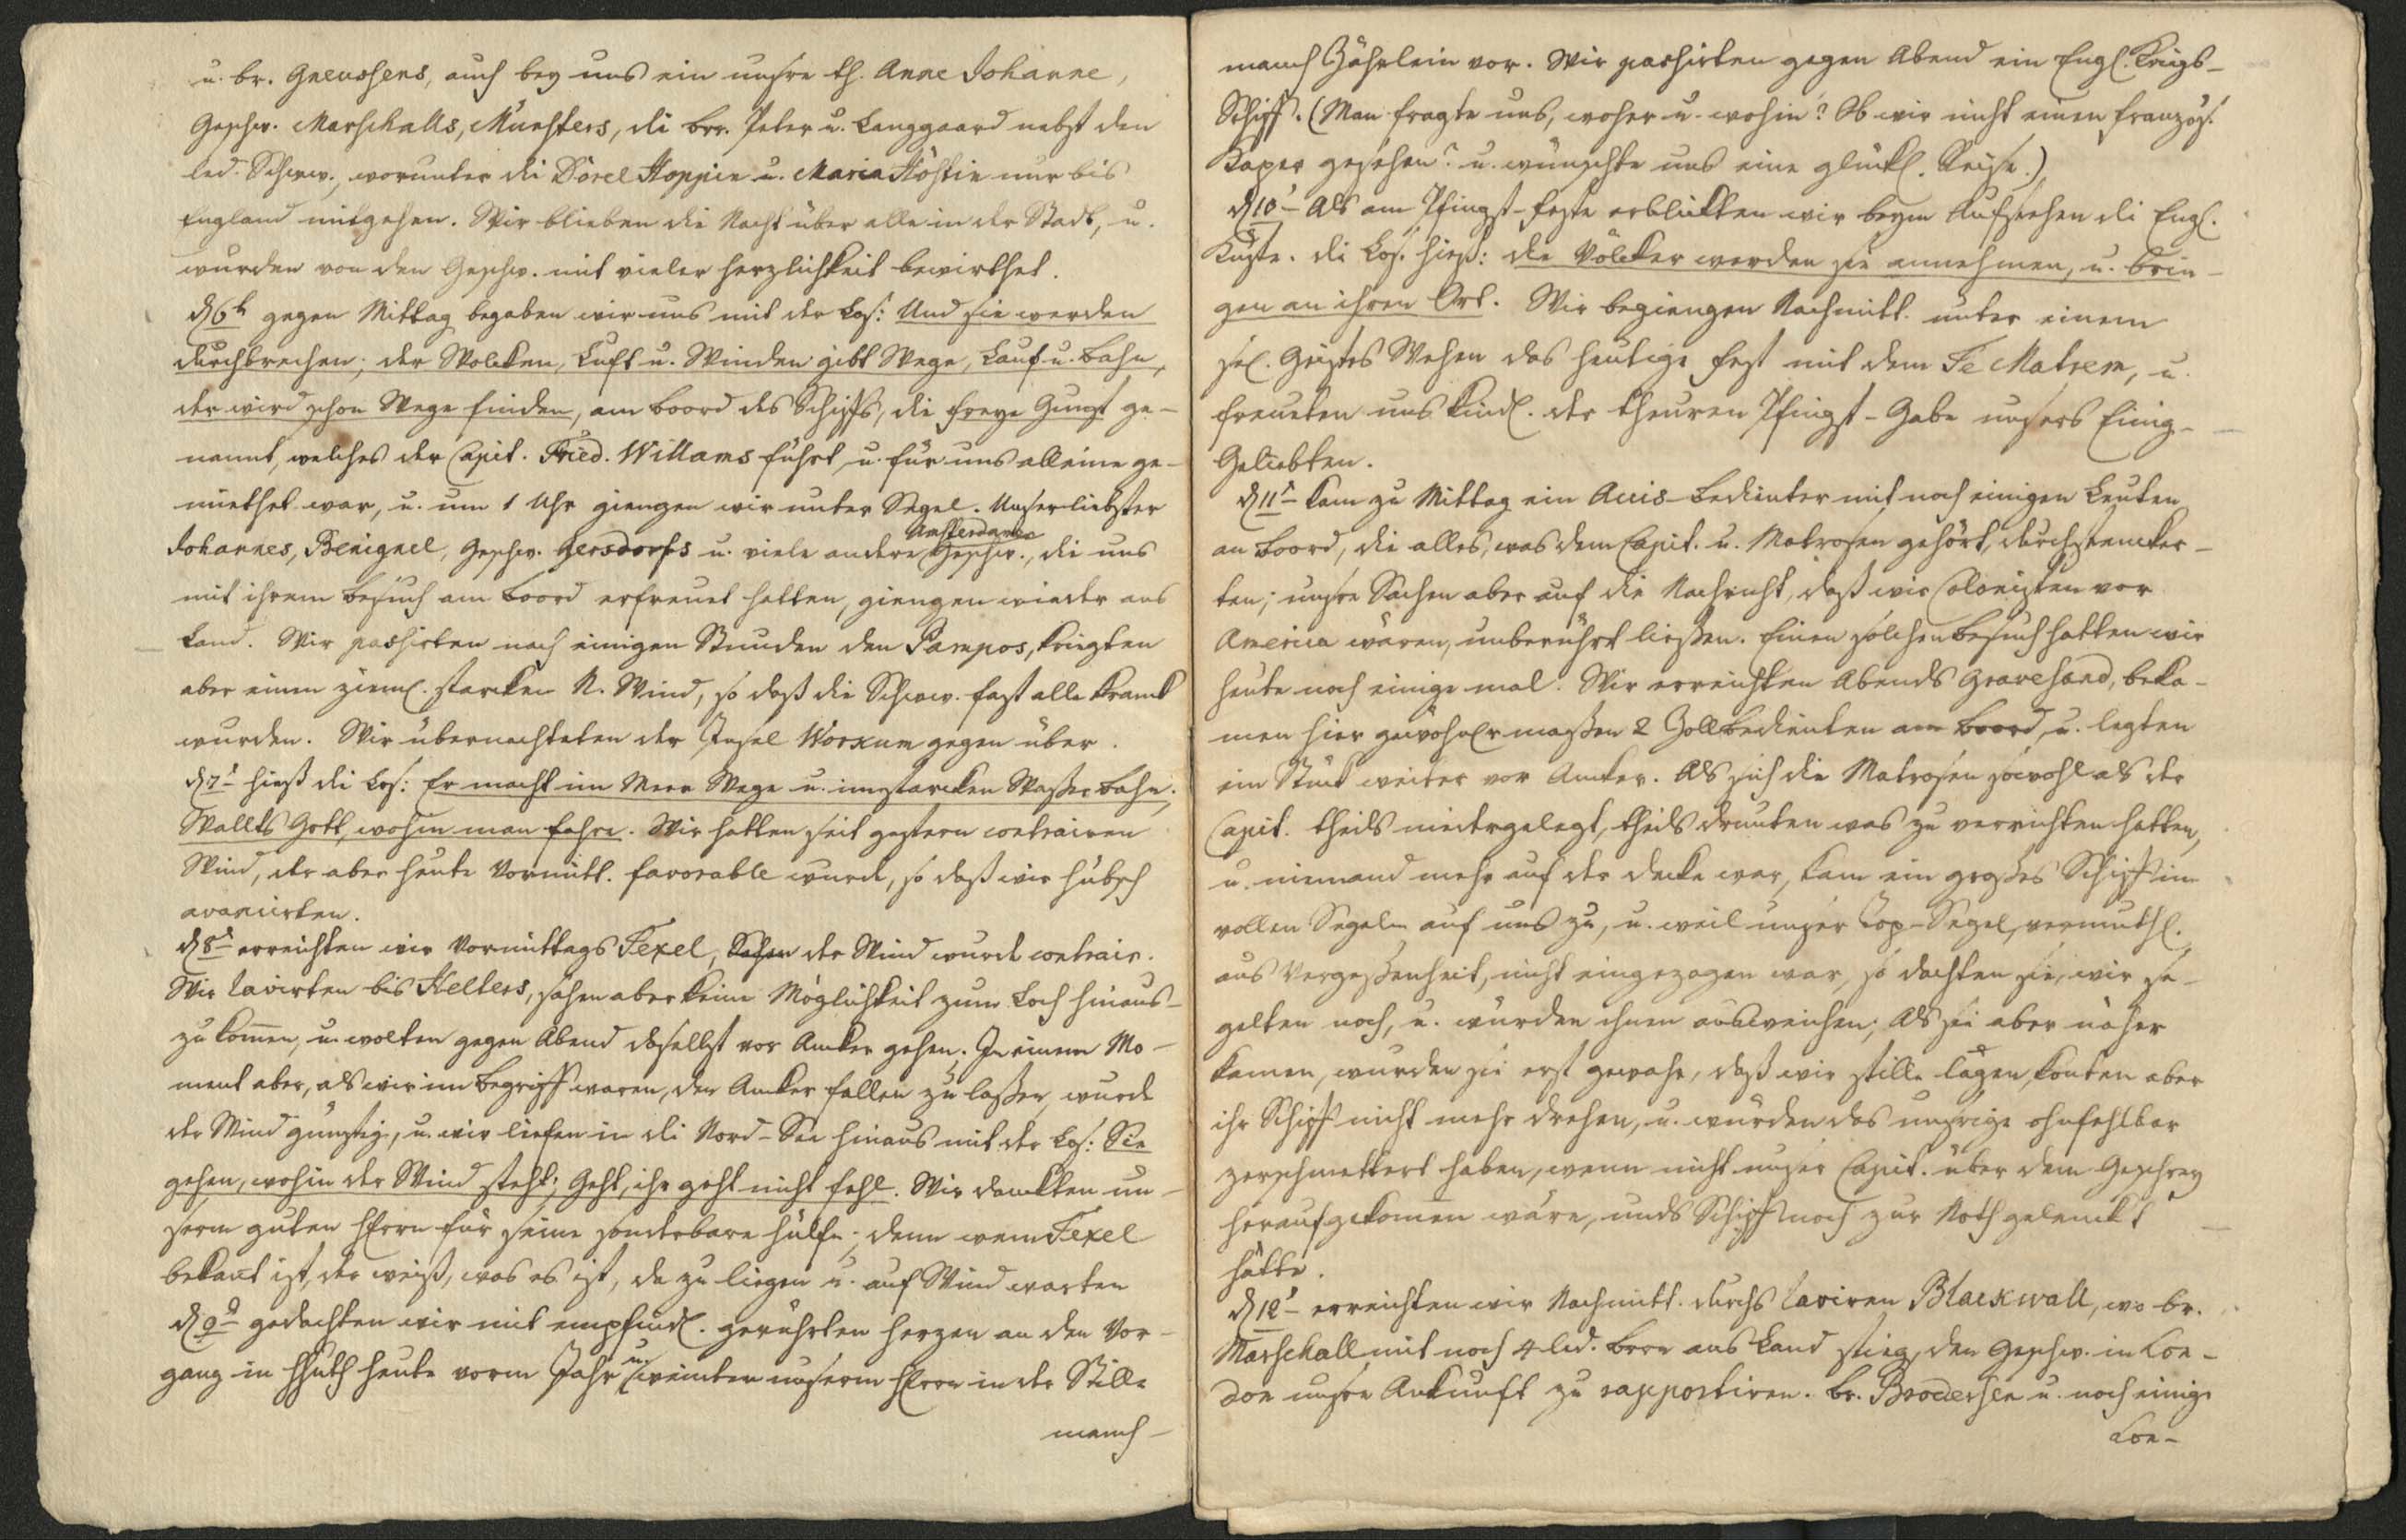 u. br. Gneussens, auch bey uns ein unsre th. Anne Johanne,
Geschw. Marschalls, Münsters, die brr. Peter u. Langgaard nebst den
led. Schww., worunter die Dorel Hoppin u. Maria Höstin nur bis
England mitgehen. Wir blieben die Nacht über alle in der Stadt, u.
wurden von den Geschw. mit vieler Herzlichkeit bewirthet.
d 6t gegen Mittag begaben wir uns mit der Los: Und sie werden
durchbrechen; der Wolcken, Luft u. Winden gibt Wege, Lauf u. Bahn,
der wird schon Wege finden, am Boord des Schiffs, die freye Gunst ge-
nannt, welches der Capit. Fried. Willams führt, u. für uns alleine ge-
miethet war, u. um 1 Uhr giengen wir unter Segel. Unser liebster
Johannes, Benignel, Geschw. Gersdorfs u. viele andere Amsterdamer Geschw., die uns
mit ihrem Besuch am Boord erfreuet hatten, giengen wieder ans
Land. Wir passirten nach einigen Stunden den Pampos, kriegten
aber einen zieml. starcken N. Wind, so daß die Schww. fast alle kranck
wurden. Wir übernachteten der Insel Worxum gegen über.
d 7t hieß die Los: Er macht im Meer Wege u. im starcken Waßer Bahn;
Wallts Gott, wohin man fahre. Wir hatten seit gestern contrairen
Wind, der aber heute Vormitt. favorable wurde, so daß wir hübsch
avancirten.
d 8t erreichten wir Vormittags Texel, der Wind wurde contrair.
Wir lavirten bis Helters, sahen aber keine Möglichkeit zum Loch hinaus-
zu komen, u. wolten gegen Abend daselbst vor Ancker gehen. In einem Mo-
ment aber, als wir im Begriff waren, den Ancker fallen zu laßen, wurde
der Wind günstig, u. wir liefen in die Nord-See hinaus mit der Los: Sie
gehen, wohin der Wind steht; Geht, ihr geht nicht fehl. Wir danckten un-
serm guten HErrn für seine sonderbare Hülfe; denn wem Texel
bekant ist, der weiß, was es ist, da zu liegen u. auf Wind warten
d 9t gedachten wir mit empfindl. gerührten Herzen an den Vor-
gang in HHuth heute vorm Jahr u. weinten unserm HErrn in der Stille
manch-
manch Zährlein vor. Wir passirten gegen Abend ein Engl. Krigs-
Schiff. (Man fragte uns, woher u. wohin? Ob wir nicht einen französ.
Kaper gesehen? u. wünschte uns eine glückl. Reise.)
d 10t Als am Pfingst-Feste erblickten wir beym Aufstehen die Engl.
Küste. die Los. hieß: die Völcker werden sie annehmen, u. brin-
gen an ihren Ort. Wir begiengen Nachmitt. unter einem
sel. Geistes Wehen das heutige Fest mit dem Te Matrem, u.
freueten uns kindl. der theuren Pfingst-Gabe unsers Einig-
Geliebten.
d 11t kam zu Mittag ein Accis-Bedienter mit noch einigen Leuten
an Boord, die alles, was dem Capit. u. Matrosen gehört, durchstencker-
ten; unsre Sachen aber auf die Nachricht, daß wir Colonisten vor
America wären, unberührt ließen. Einen solchen Besuch hatten wir
heute noch einige mal. Wir erreichten Abends Gravesand, beka-
men hier gewöhnlr maßen 2 Zollbedienten am Boord, u. legten
ein Stück weiter vor Ancker. Als sich die Matrosen sowohl als der
Capit. theils niedergelegt, theils drunten was zu verrichten hatten,
u. niemand mehr auf der Decke war, kam ein großes Schiff in
vollen Segeln auf uns zu, u. weil unser Top-Segel, vermuthl.
aus Vergeßenheit, nicht eingezogen war, so dachten sie, wir se-
gelten noch, u. würden ihnen ausweichen; Als sie aber näher
kamen, wurden sie erst gewahr, daß wir stille lägen, konten aber
ihr Schiff nicht mehr drehen, u. würden das unsrige ohnfehlbar
zerschmettert haben, wenn nicht unser Capit. über dem Geschrey
heraufgekomen wäre, unds Schiff noch zur Noth gelenckt
hätte.
d 12t erreichten wir Nachmitt. durchs Laviren Blackwall, wo br.
Marschall mit noch 4 led. Brrn ans Land stieg, den Geschw. in Lon-
don unsre Ankunft zu rapportiren. br. Brodersen u. noch einige
Lon-